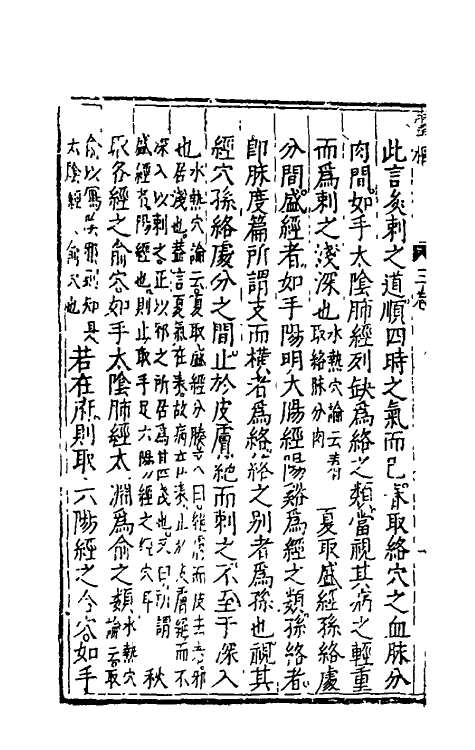 靈樞　三卷
此言灸刺之道順四時之氣而已春取絡穴之血脉分
肉間如手太陰肺經列缺為絡之類當視其病之輕重
而為刺之淺深也水熱穴論云春取絡脉分肉　夏取盛經孫絡處
分間盛經者如手陽明大陽經陽谿為經之類孫絡者
即脉度篇所謂支而橫者為絡絡之別者為孫也視其
經穴孫絡處分之間止於皮膚絕而刺之不至于深入
也水熱穴論云夏取盛經分腠又曰絕膚而病去者邪
居淺也蓋言夏氣在表故病在表止於皮膚絕而不
深入以刺之正以邪之所居為其淺也又曰所謂
盛經者陽經也則止取手足六陽經之經穴耳　秋
取各經之俞穴如手太陰肺經太淵為俞之類水熱穴論云取
俞以瀉陰邪則知其太陰經之俞穴也　若在府則取六陽經之合穴如手